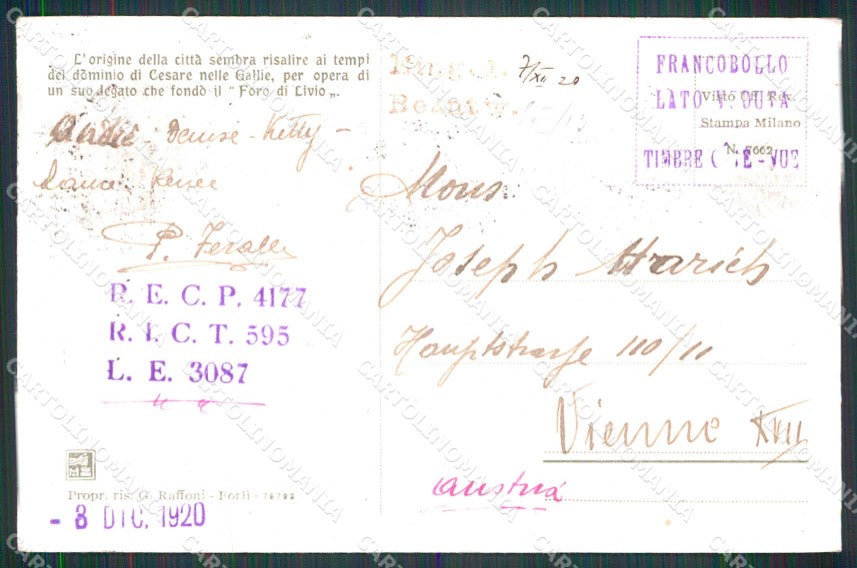 L'origine della città sembra risalire ai tempi
del dominio di Cesare nelle Gallie, per opera di
un suo legato che fondò il "Foro di Livio„.
Denise - Ketty -
Renée
P.
R. E. C. P. 4177
R. I. C. T. 595
L. E. 3087
Propr. ris. G. Raffoni - Forlì - 76793
- 8 DIC. 1920
7/XII 20
FRANCOBOLLO
LATO VEDUTA
Visto Uff. Rev.
Stampa Milano
N. 7662
TIMBRE COTÉ-VUE
Mons.
Joseph
Hauptstrasse 110/11
Vienne XVII
Austria
CARTOLINOMANIA